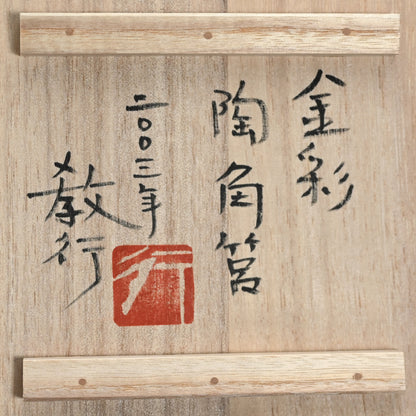 金彩
陶角筥
二〇〇三年
教行
行